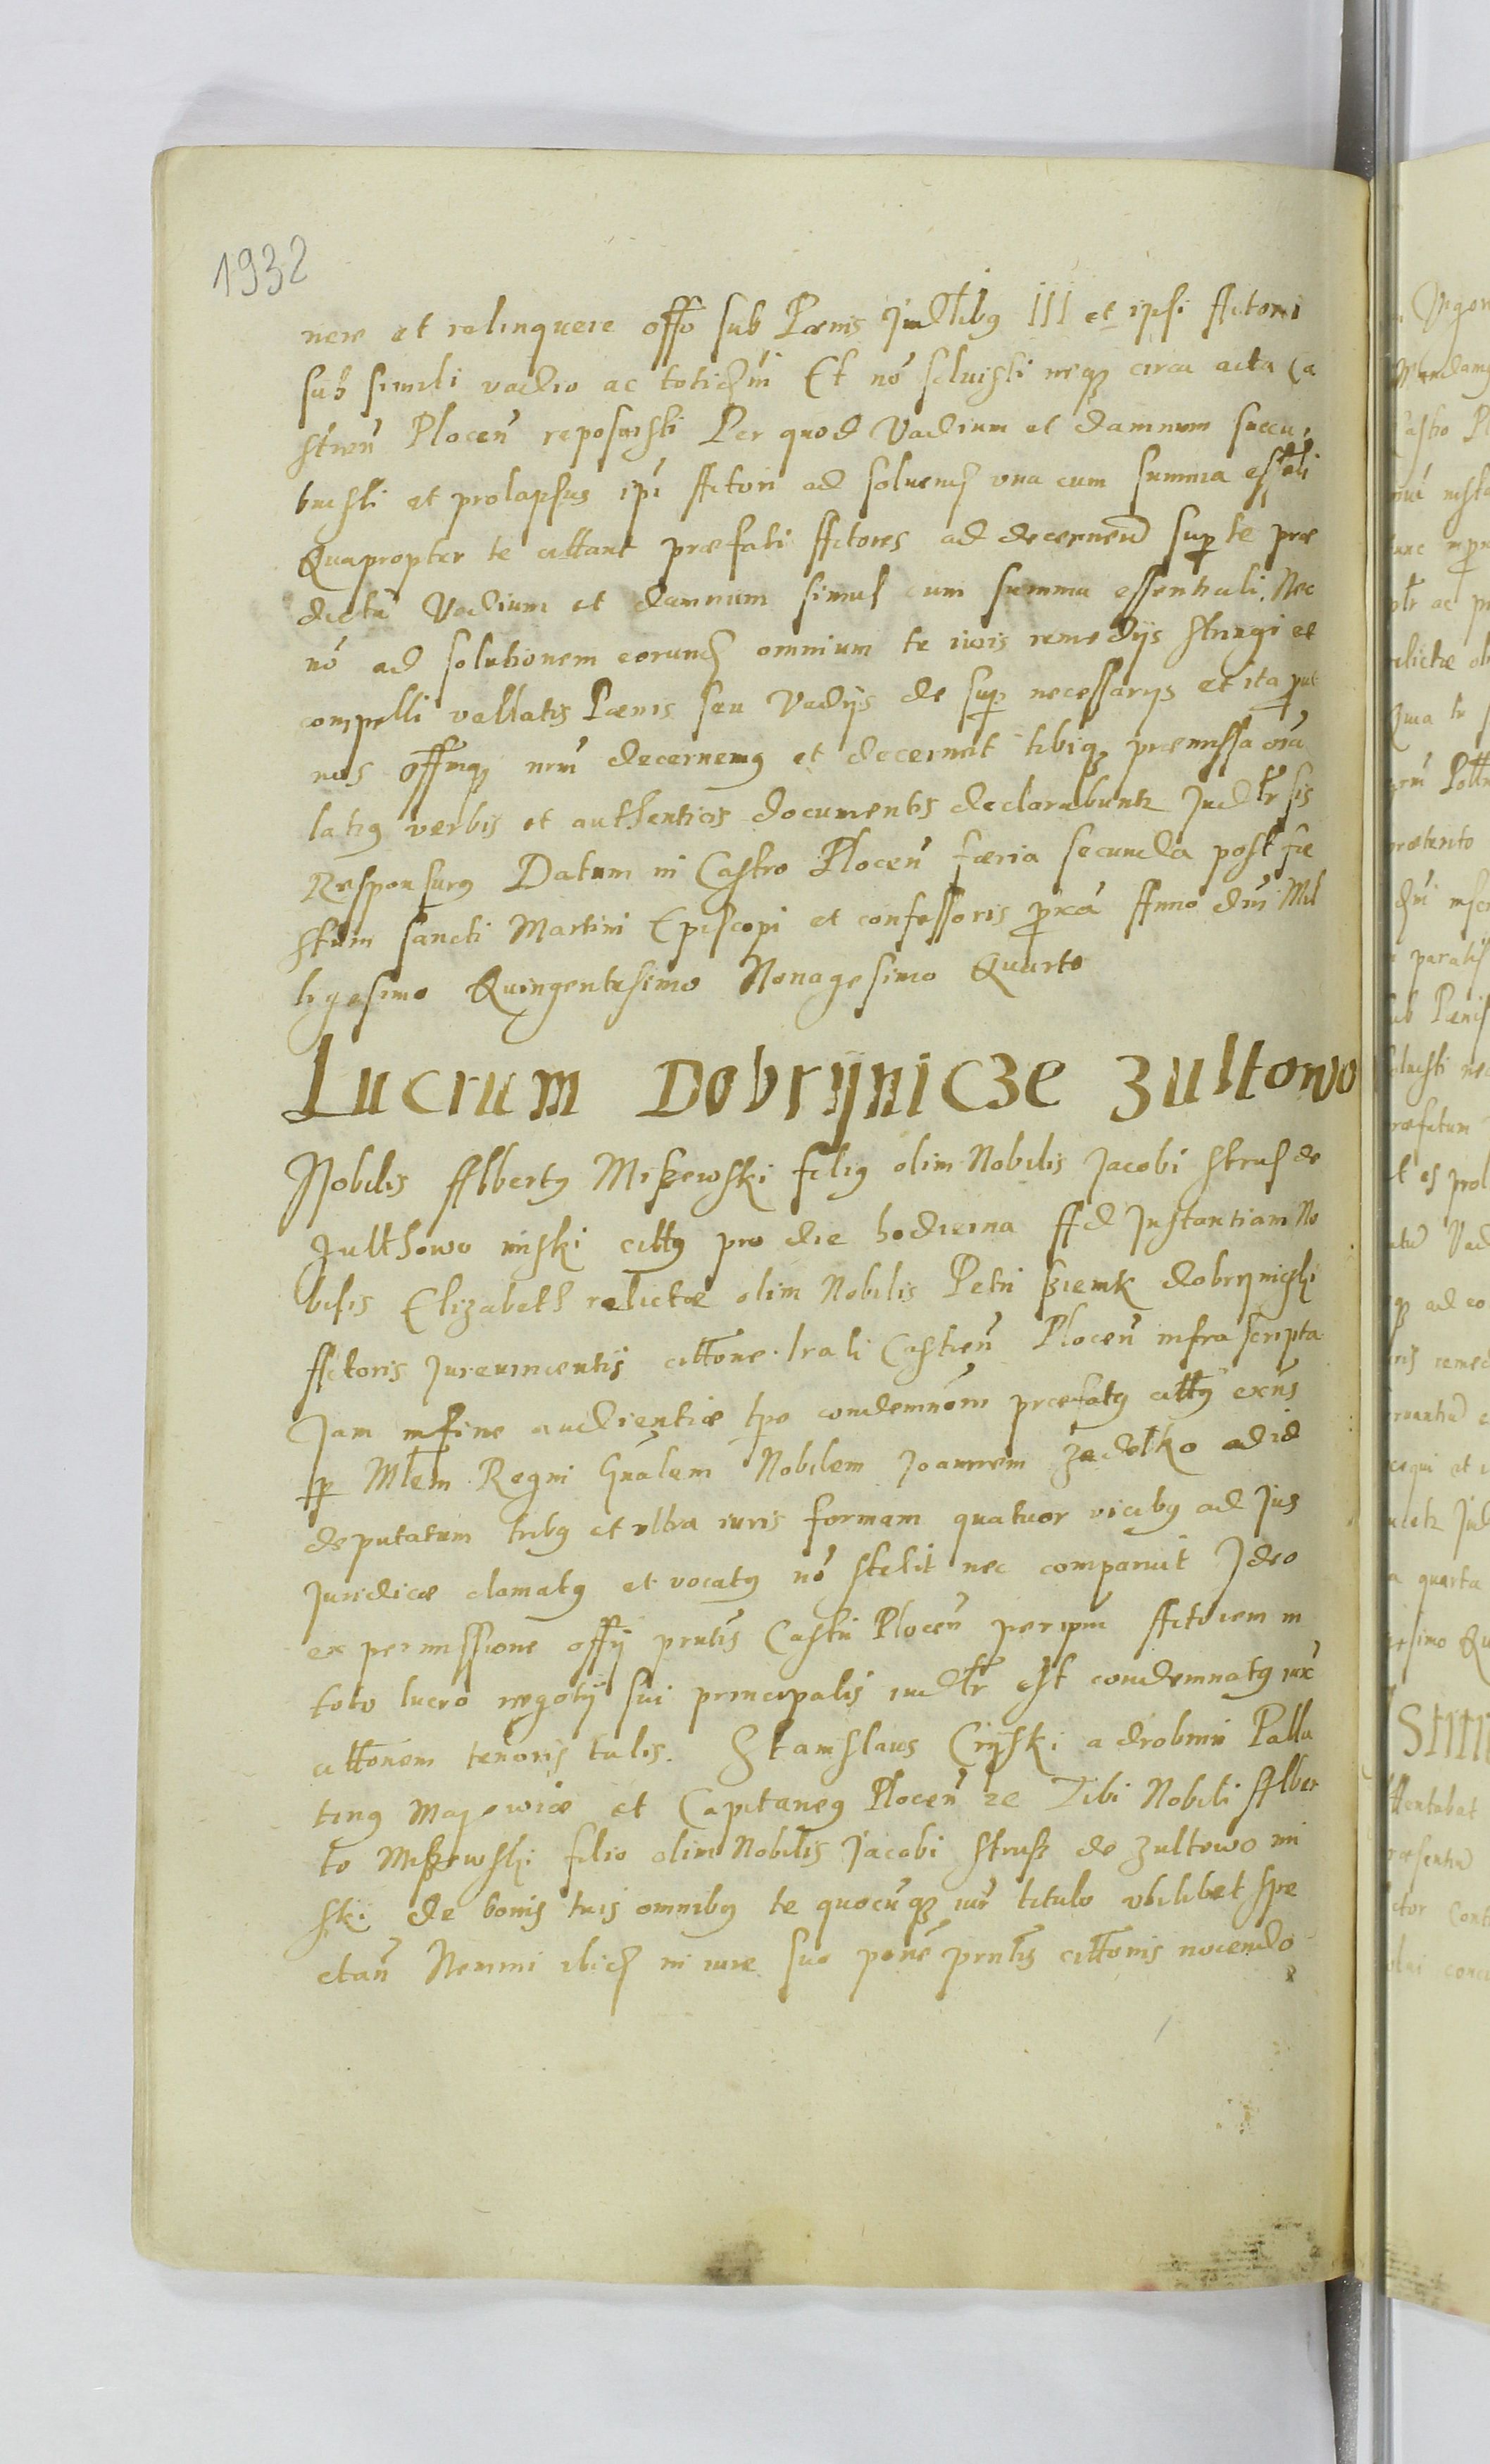 1932
nere et relinquere offo sub Pœnis Judlibꝰ III et ipsi Actori
sub simili vadio ac totidem Et nō soluisti neqꝫ circa acta Ca
stren̄ Plocen̄ reposuisti Per quod Vadium et damnum succu,
buisti et prolapsus ipī Actori ad soluend una cum summa essāli
Quapropter te cittant præfati Actores ad decernend sup te præ
dictū Vadium et damnum simul cum summa essentiali. Nec
nō ad solutionem eorund omnium te iuris remedijs stringi et
compelli vallatis Pœnis seu Vadijs de sup necessarys et ita put
nos offmqꝫ nrm̄ decernemꝰ et decernet tibiqꝫ præmissa oīa
latiꝰ verbis et authenticis documentis declarabuntꝛ Judtr sis
Responsurꝰ Datum in Castro Plocen̄ fœria secunda post fe
stum sancti Martini Episcopi et confessoris pxā Anno dnī Mil
lesimo Quingentesimo Nonagesimo Quarto
Lucrum Dobrÿnicze Zultowo
Nobilis Albertꝰ Miszewski filiꝰ olim Nobilis Jacobi Strus de
Zulthowo miski cittꝰ pro die hodierna Ad Instantiam No
bilis Elizabeth relictæ olim Nobilis Petri sziemk dobrzynicski
Actoris Jureuincentis cittone lrali Castren̄ Plocen̄ infra scripta
Jam in fine audientiæ tpe condemnōm præfatꝰ cittꝰ exn̄s
p Mlem Regni Gnalem Nobilem Joannem Zadelko ad id
deputatum tribꝰ et ultra iuris formam quatuor vicibꝰ ad Jus
Juridice clamatꝰ et vocatꝰ nō stetit nec comparuit Ideo
ex permissione offÿ prntis Castri Plocen̄ per ipm̄ Actorem in
toto lucro negotÿ sui principalis iudtr est condemnatꝰ iux̄
cittonem tenoris talis. Stanislaus Crÿski a drobnin Palla
tinꝰ Mazowiæ et Capitaneꝰ Plocen̄ ꝛc Tibi Nobili Alber
to Miszewski filio olim Nobilis Jacobi Strusz de Zultowo mi
ski de bonis tuis omnibꝰ te quocūqꝫ iur titulo ubilibet spe
ctan̄ Nemini alicꝫ in iure suo ponē prntis cittonis nocendo